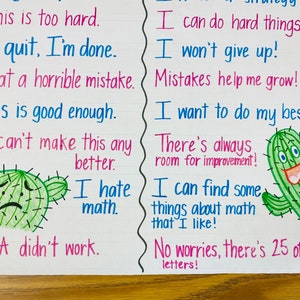 is is too hard.
quit, I'm done.
at a horrible mistake.
s is good enough.
can't make this any
better.
I hate
math.
A didn't work.
strategy
I can do hard things
I won't give up!
Mistakes help me grow!
I want to do my bes
There's always
room for improvement!
I can find some
things about math
that I like!
No worries, there's 25 ot
letters!